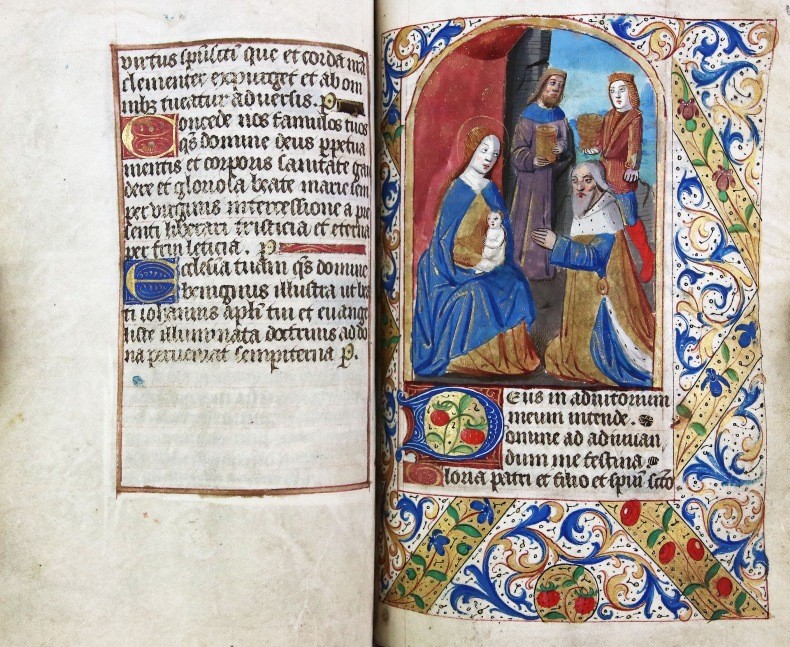 virtus spūscti que et corda nrā
clementer expurget et ab om
nibz tueatur adversis. P
Concede nos famulos tuos
qs domine deus ppetua
mentis et corporis sanitate gau
dere et gloriosa beate marie sem
per virginis intercessione a pre
senti liberari tristicia et eterna
per frui leticia. P
Ecclesiā tuam qs domine
benignus illustra ut bea
ti iohannis apli tui et evange
liste illuminata doctrinis ad do
na perveniat sempiterna P.
Deus in adiutorium
meum intende.
Domine ad adiuvan
dum me festina
Gloria patri et filio et spiui scto